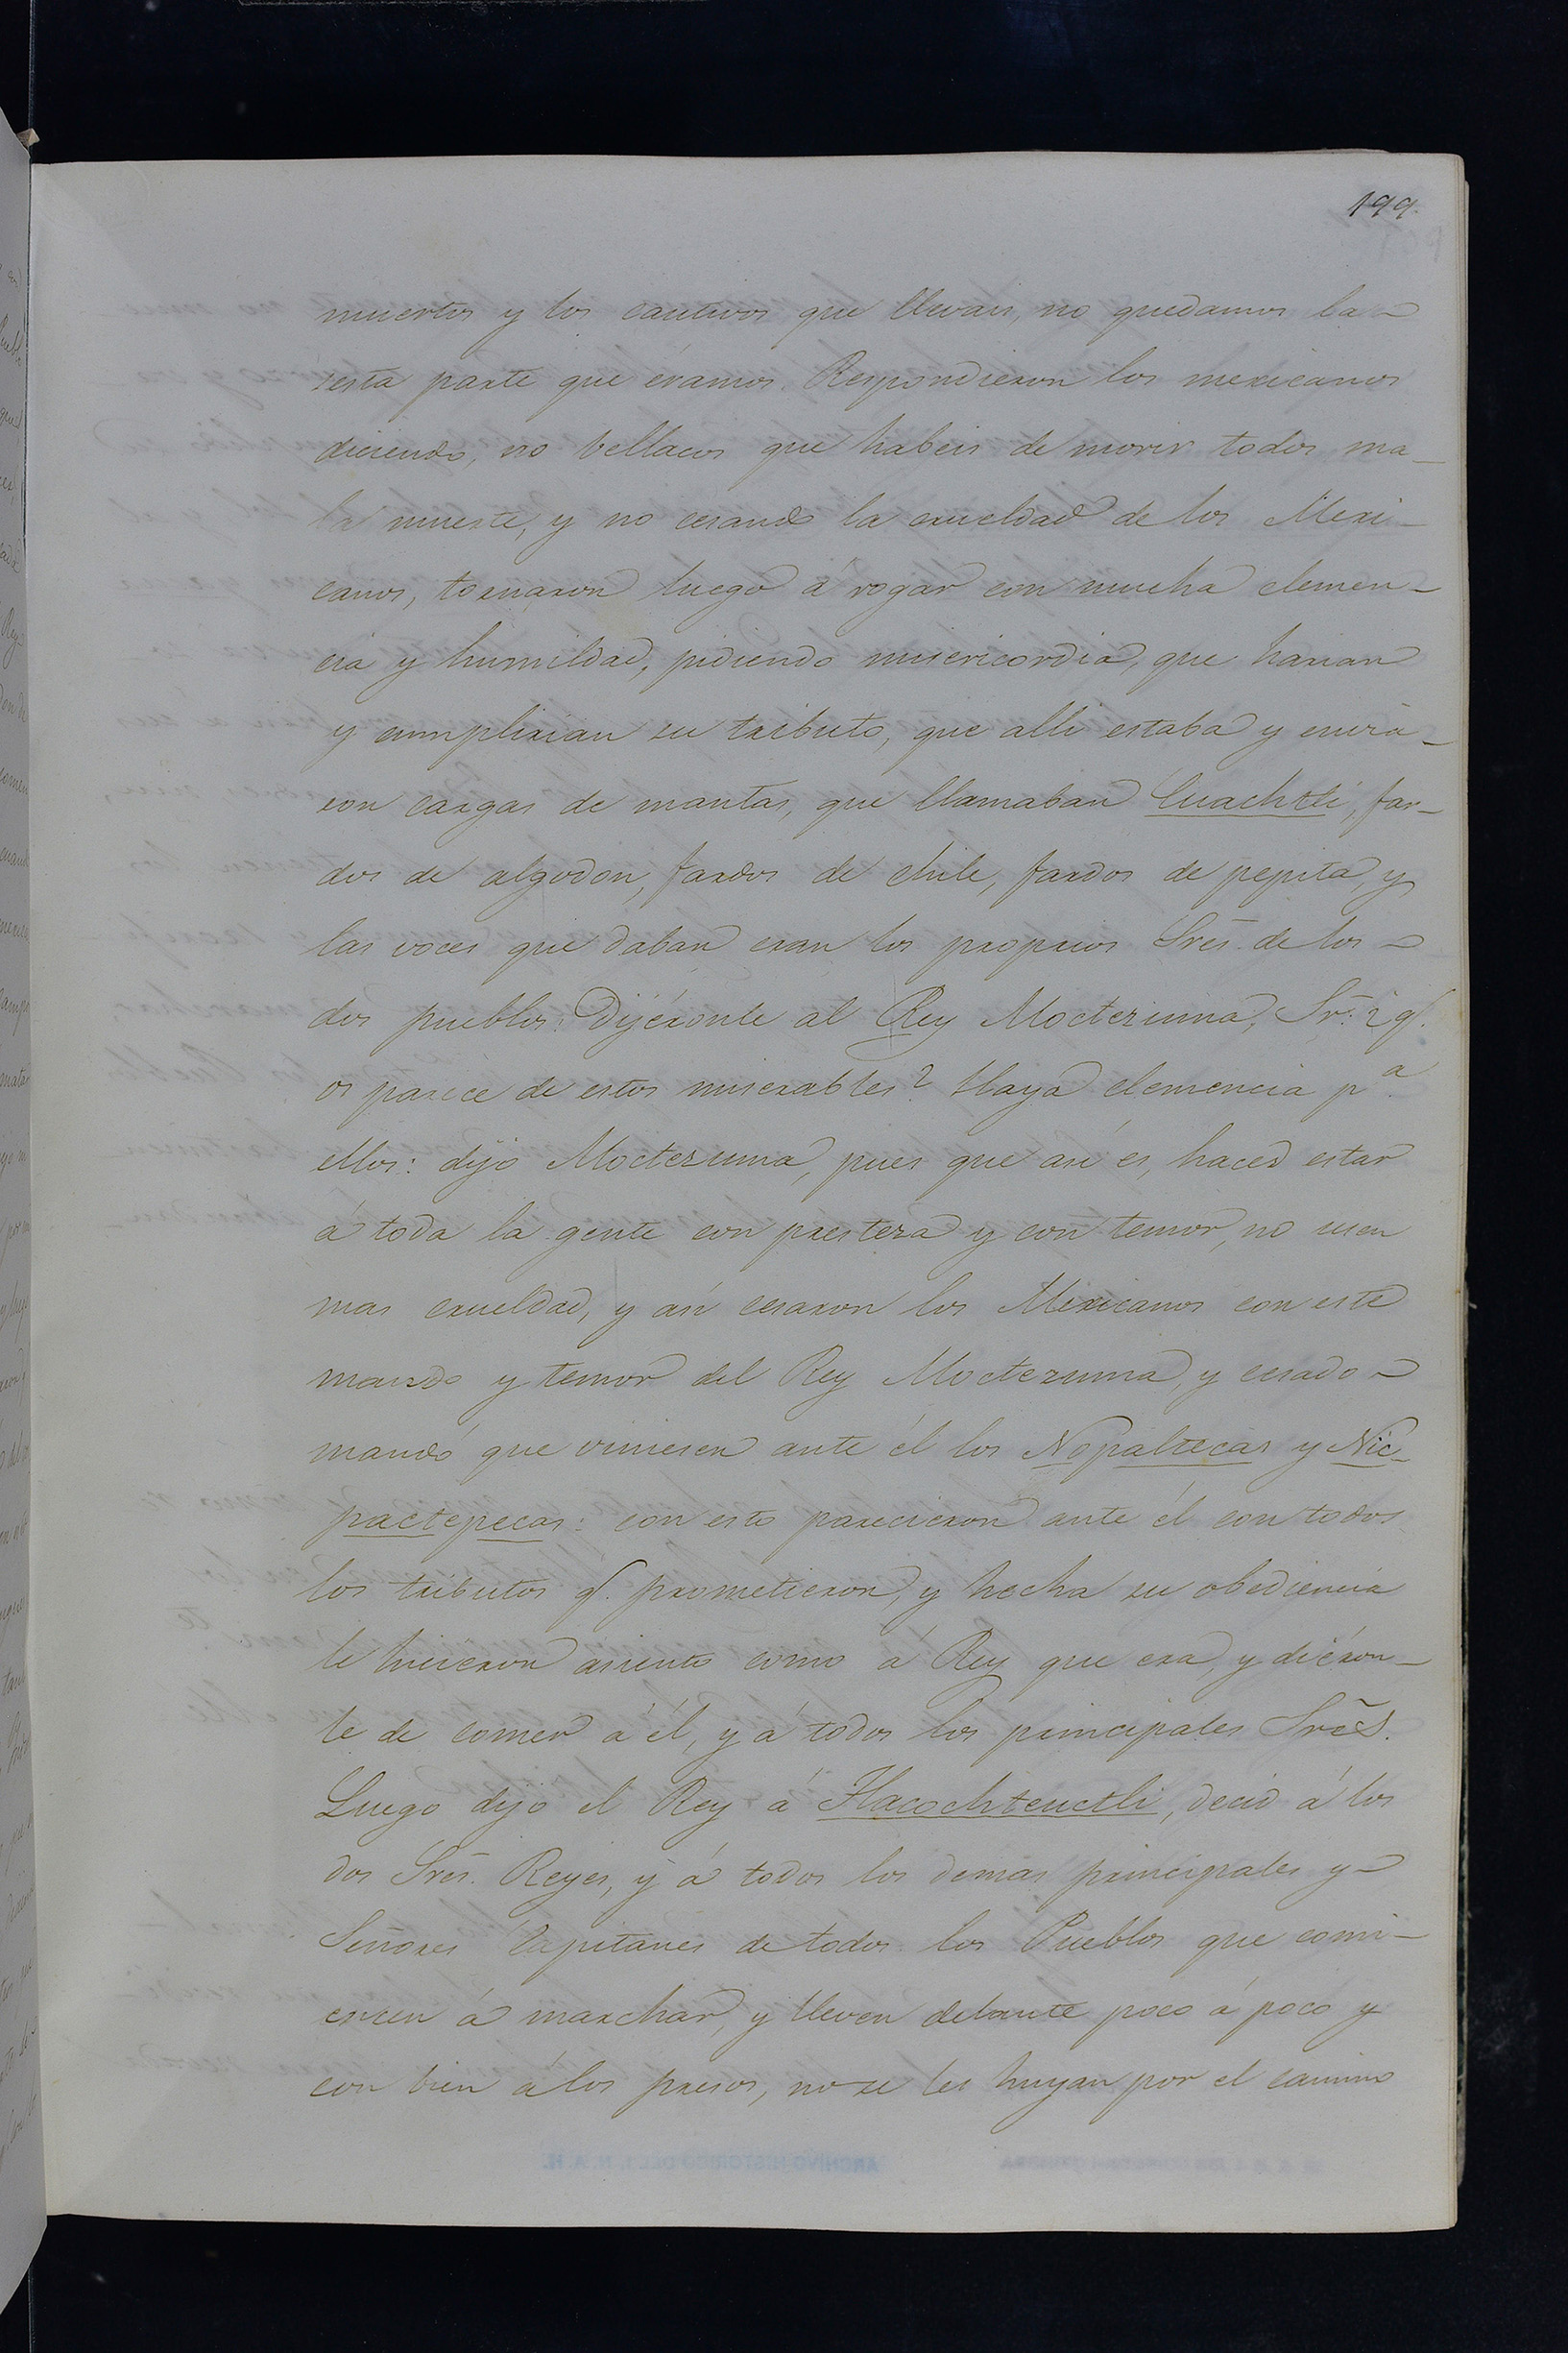 199.
muertos y los cautivos que llevais, no quedamos la
sesta parte que éramos. Respondieron los mexicanos
diciendo, no bellacos que habeis de morir todos ma-
la muerte, y no cesando la crueldad de los Mexi-
canos, tornaron luego á rogar con mucha clemen-
cia y humildad, pidiendo misericordia, que harian
y cumplirian su tributo, que alli estaba y
ron cargas de mantas, que llamaban Cuachtli, far-
dos de algodon, fardos de chile, fardos de pepita, y
las voces que daban eran los proprios Srẽs. de los
dos pueblos: Dijéronle al Rey Moctezuma, Sr̃: ¿q.
os parece de estos miserables? Haya clemencia pª.
ellos: dijo Moctezuma, pues que asi es, haced estar
á toda la gente con presteza y con temor, no usen
mas crueldad, y asi cesaron los Mexicanos con este
mando y temor del Rey Moctezuma, y cesado
mandó que viniesen ante él los Nopaltecas y Nic-
pactepecas: con esto parecieron ante él con todos
los tributos q. prometieron, y hecha su obediencia
le hicieron asiento como á Rey que era, y diéron-
le de comer á él, y á todos los principales Srẽs.
Luego dijo el Rey á Tlacochteuctli, decid á los
dos Srẽs. Reyes, y á todos los demas principales y
Señores Capitanes de todos los Pueblos que comi-
encen á marchar, y lleven delante poco á poco y
con bien á los presos, no se les huyan por el camino
ARCHIVO HISTORICO DEL I. N. A. H.